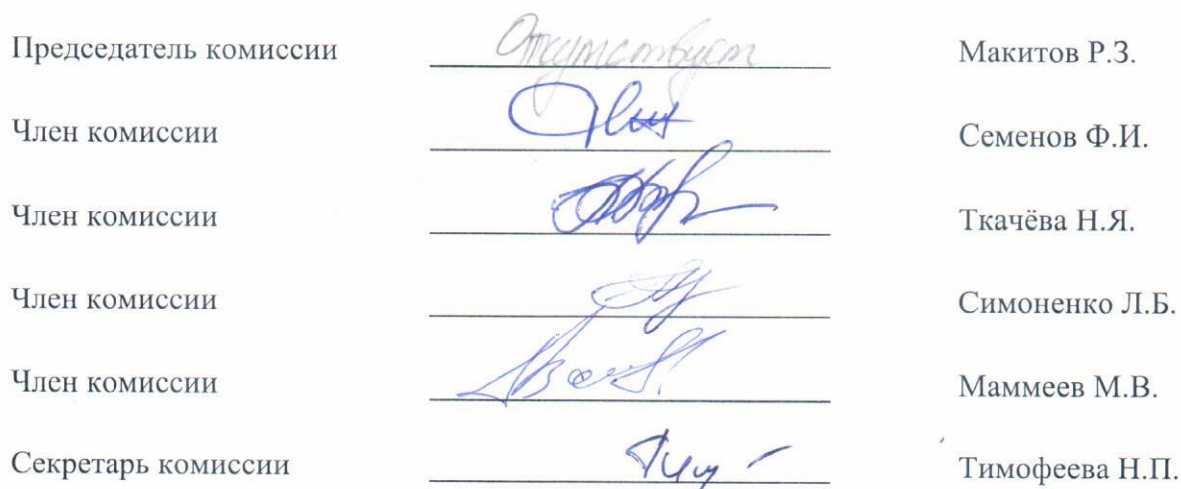 Председатель комиссии Отсутствует Макитов Р.З.
Член комиссии Семенов Ф.И.
Член комиссии Ткачёва Н.Я.
Член комиссии Симоненко Л.Б.
Член комиссии Маммеев М.В.
Секретарь комиссии Тимофеева Н.П.